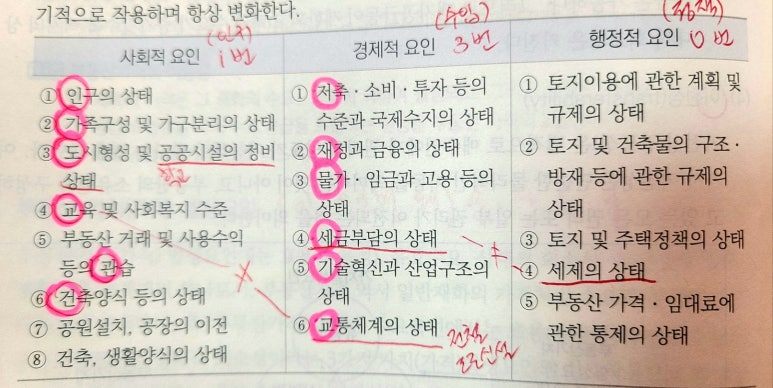 기적으로 작용하며 항상 변화한다.
(인지) (수입)
1번 3번 0번
사회적 요인 경제적 요인 행정적 요인
① 인구의 상태
② 가족구성 및 가구분리의 상태
③ 도시형성 및 공공시설의 정비
상태 학교
④ 교육 및 사회복지 수준
⑤ 부동산 거래 및 사용수익
등의 관습
⑥ 건축양식 등의 상태
⑦ 공원설치, 공장의 이전
⑧ 건축, 생활양식의 상태
① 저축·소비·투자 등의
수준과 국제수지의 상태
② 재정과 금융의 상태
③ 물가·임금과 고용 등의
상태
④ 세금부담의 상태
⑤ 기술혁신과 산업구조의
상태
⑥ 교통체계의 상태
전철
도로신설
① 토지이용에 관한 계획 및
규제의 상태
② 토지 및 건축물의 구조·
방재 등에 관한 규제의
상태
③ 토지 및 주택정책의 상태
④ 세제의 상태
⑤ 부동산 가격·임대료에
관한 통제의 상태
≠
≠